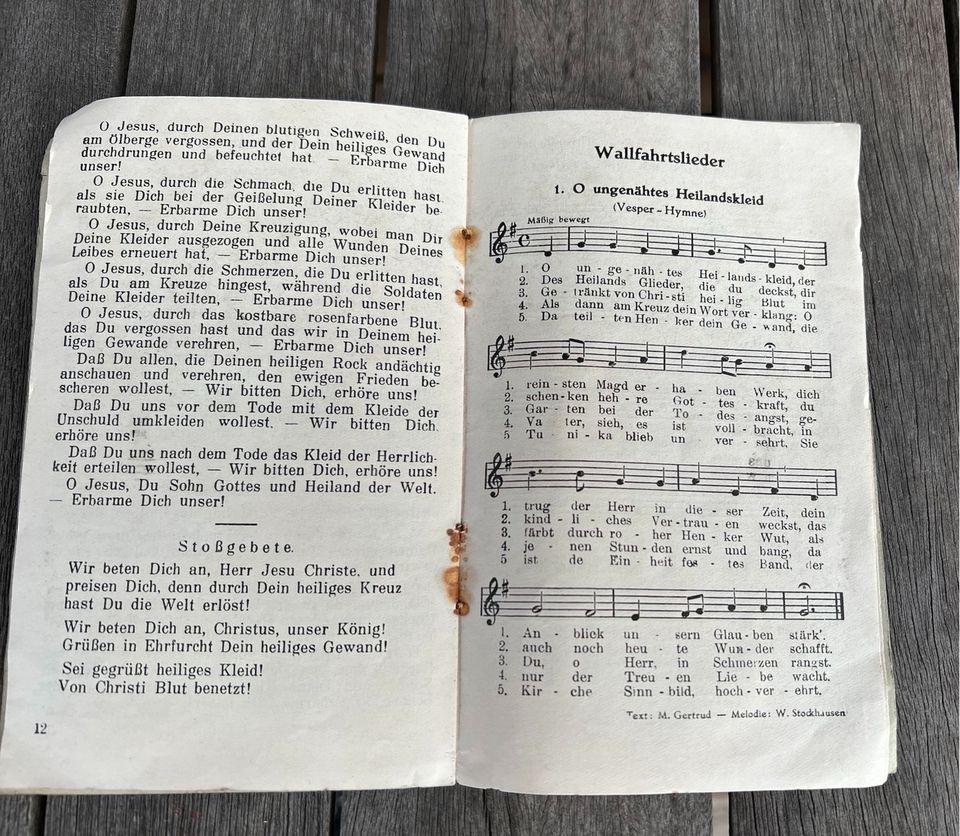 O Jesus, durch Deinen blutigen Schweiß, den Du
am Ölberge vergossen, und der Dein heiliges Gewand
durchdrungen und befeuchtet hat. — Erbarme Dich
unser!
O Jesus, durch die Schmach, die Du erlitten hast,
als sie Dich bei der Geißelung Deiner Kleider be-
raubten, — Erbarme Dich unser!
O Jesus, durch Deine Kreuzigung, wobei man Dir
Deine Kleider ausgezogen und alle Wunden Deines
Leibes erneuert hat, — Erbarme Dich unser!
O Jesus, durch die Schmerzen, die Du erlitten hast,
als Du am Kreuze hingest, während die Soldaten
Deine Kleider teilten, — Erbarme Dich unser!
O Jesus, durch das kostbare rosenfarbene Blut,
das Du vergossen hast und das wir in Deinem hei-
ligen Gewande verehren, — Erbarme Dich unser!
Daß Du allen, die Deinen heiligen Rock andächtig
anschauen und verehren, den ewigen Frieden be-
scheren wollest, — Wir bitten Dich, erhöre uns!
Daß Du uns vor dem Tode mit dem Kleide der
Unschuld umkleiden wollest. — Wir bitten Dich,
erhöre uns!
Daß Du uns nach dem Tode das Kleid der Herrlich-
keit erteilen wollest, — Wir bitten Dich, erhöre uns!
O Jesus, Du Sohn Gottes und Heiland der Welt.
— Erbarme Dich unser!
Stoßgebete.
Wir beten Dich an, Herr Jesu Christe, und
preisen Dich, denn durch Dein heiliges Kreuz
hast Du die Welt erlöst!
Wir beten Dich an, Christus, unser König!
Grüßen in Ehrfurcht Dein heiliges Gewand!
Sei gegrüßt heiliges Kleid!
Von Christi Blut benetzt!
12
Wallfahrtslieder
1. O ungenähtes Heilandskleid
(Vesper-Hymne)
Mäßig bewegt
1. O un - ge - näh - tes Hei - lands - kleid, der
2. Des Heilands Glieder, die du deckst, dir
3. Ge - tränkt von Chri - sti hei - lig Blut im
4. Als dann am Kreuz dein Wort ver - klang: O
5. Da teil - ten Hen - ker dein Ge - wand, die
1. rein - sten Magd er - ha - ben Werk, dich
2. schen - ken heh - re Got - tes - kraft, du
3. Gar - ten bei der To - des - angst, ge-
4. Va - ter, sieh, es ist voll - bracht, in
5 Tu - ni - ka blieb un - ver - sehrt, Sie
1. trug der Herr in die - ser Zeit, dein
2. kind - li - ches Ver - trau - en weckst, das
3. färbt durch ro - her Hen - ker Wut, als
4. je - nen Stun - den ernst und bang, da
5 ist de Ein - heit fes - tes Band, der
1. An - blick un - sern Glau - ben stärk'.
2. auch noch heu - te Wun - der schafft.
3. Du, o Herr, in Schmerzen rangst.
4. nur der Treu - en Lie - be wacht.
5. Kir - che Sinn - bild, hoch - ver - ehrt.
Text: M. Gertrud — Melodie: W. Stockhausen